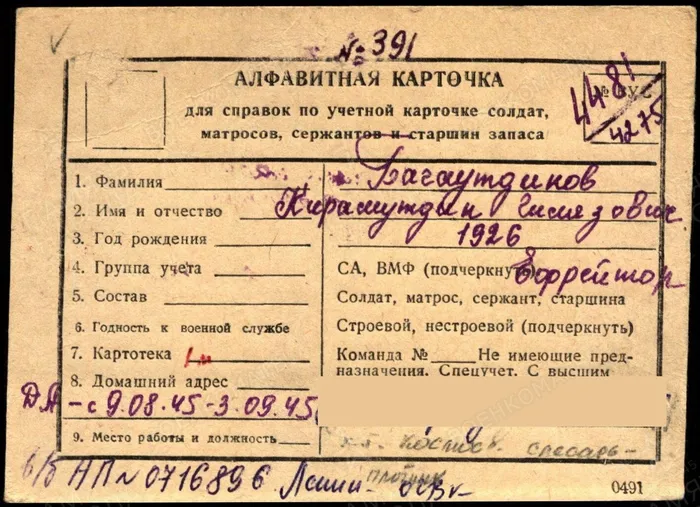 № 391
АЛФАВИТНАЯ КАРТОЧКА
№ ВУС
4481
4275
для справок по учетной карточке солдат,
матросов, сержантов и старшин запаса
1. Фамилия Багаутдинов
2. Имя и отчество Кирамутдин Гилязович
3. Год рождения 1926
4. Группа учета
СА, ВМФ (подчеркнуть) Ефрейтор
5. Состав
Солдат, матрос, сержант, старшина
6. Годность к военной службе
Строевой, нестроевой (подчеркнуть)
7. Картотека
Команда № Не имеющие пред-
назначения. Спецучет. С высшим
8. Домашний адрес
ДА - с 9.08.45-3.09.45
9. Место работы и должность
слесарь-
в/б АП № 0716896
0491